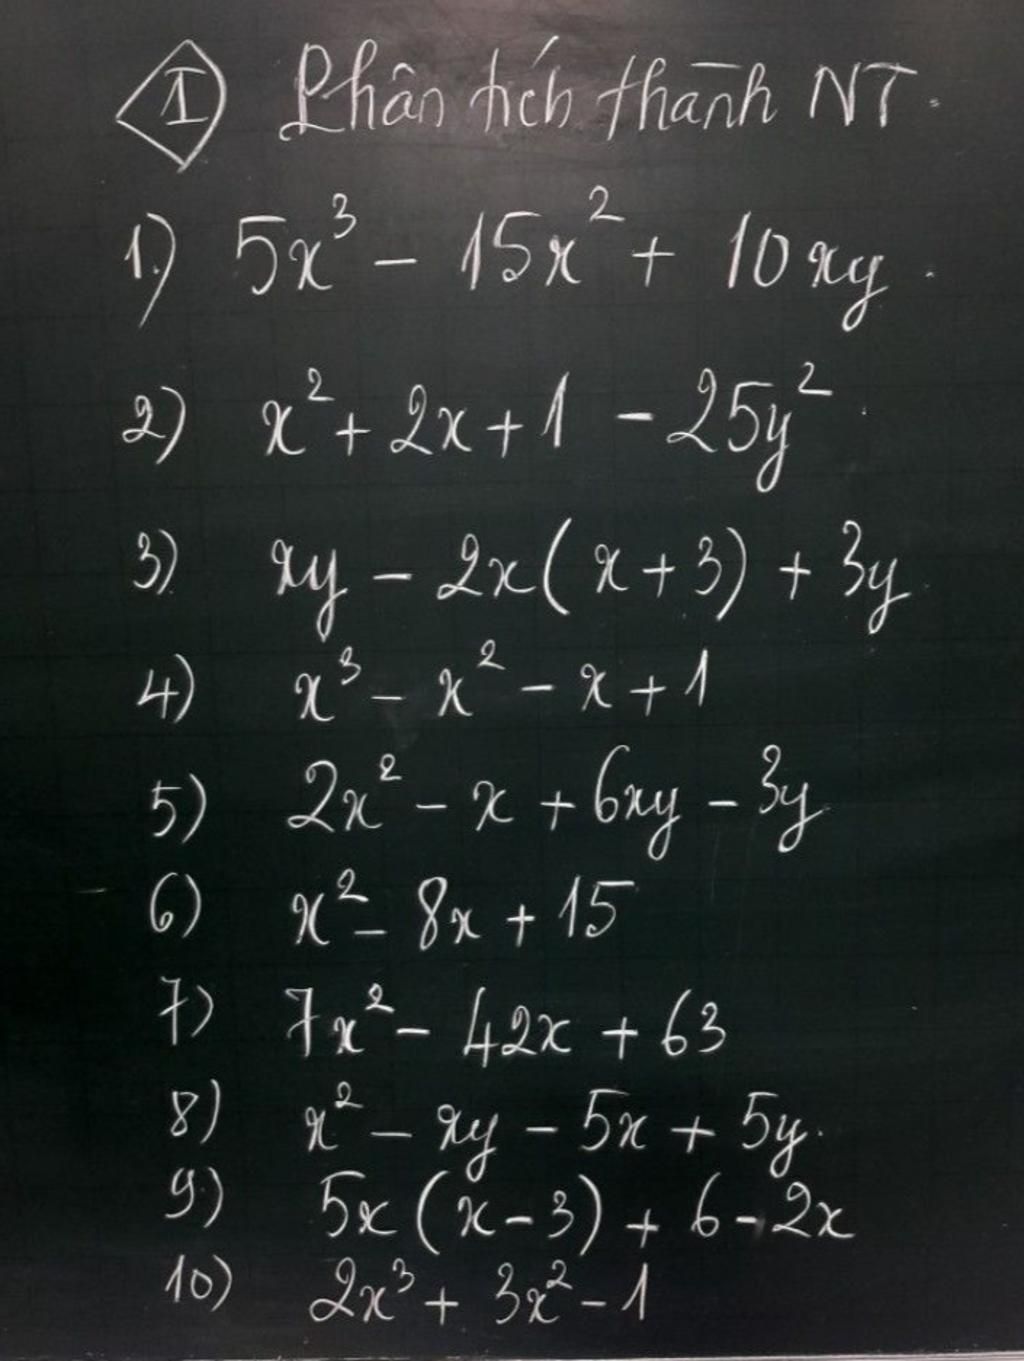 I Phân tích thành NT.
1.) 5x³ - 15x² + 10xy.
2) x² + 2x + 1 - 25y².
3) xy - 2x(x + 3) + 3y
4) x³ - x² - x + 1
5) 2x² - x + 6xy - 3y
6) x² - 8x + 15
7) 7x² - 42x + 63
8) x² - xy - 5x + 5y.
9) 5x(x - 3) + 6 - 2x
10) 2x³ + 3x² - 1